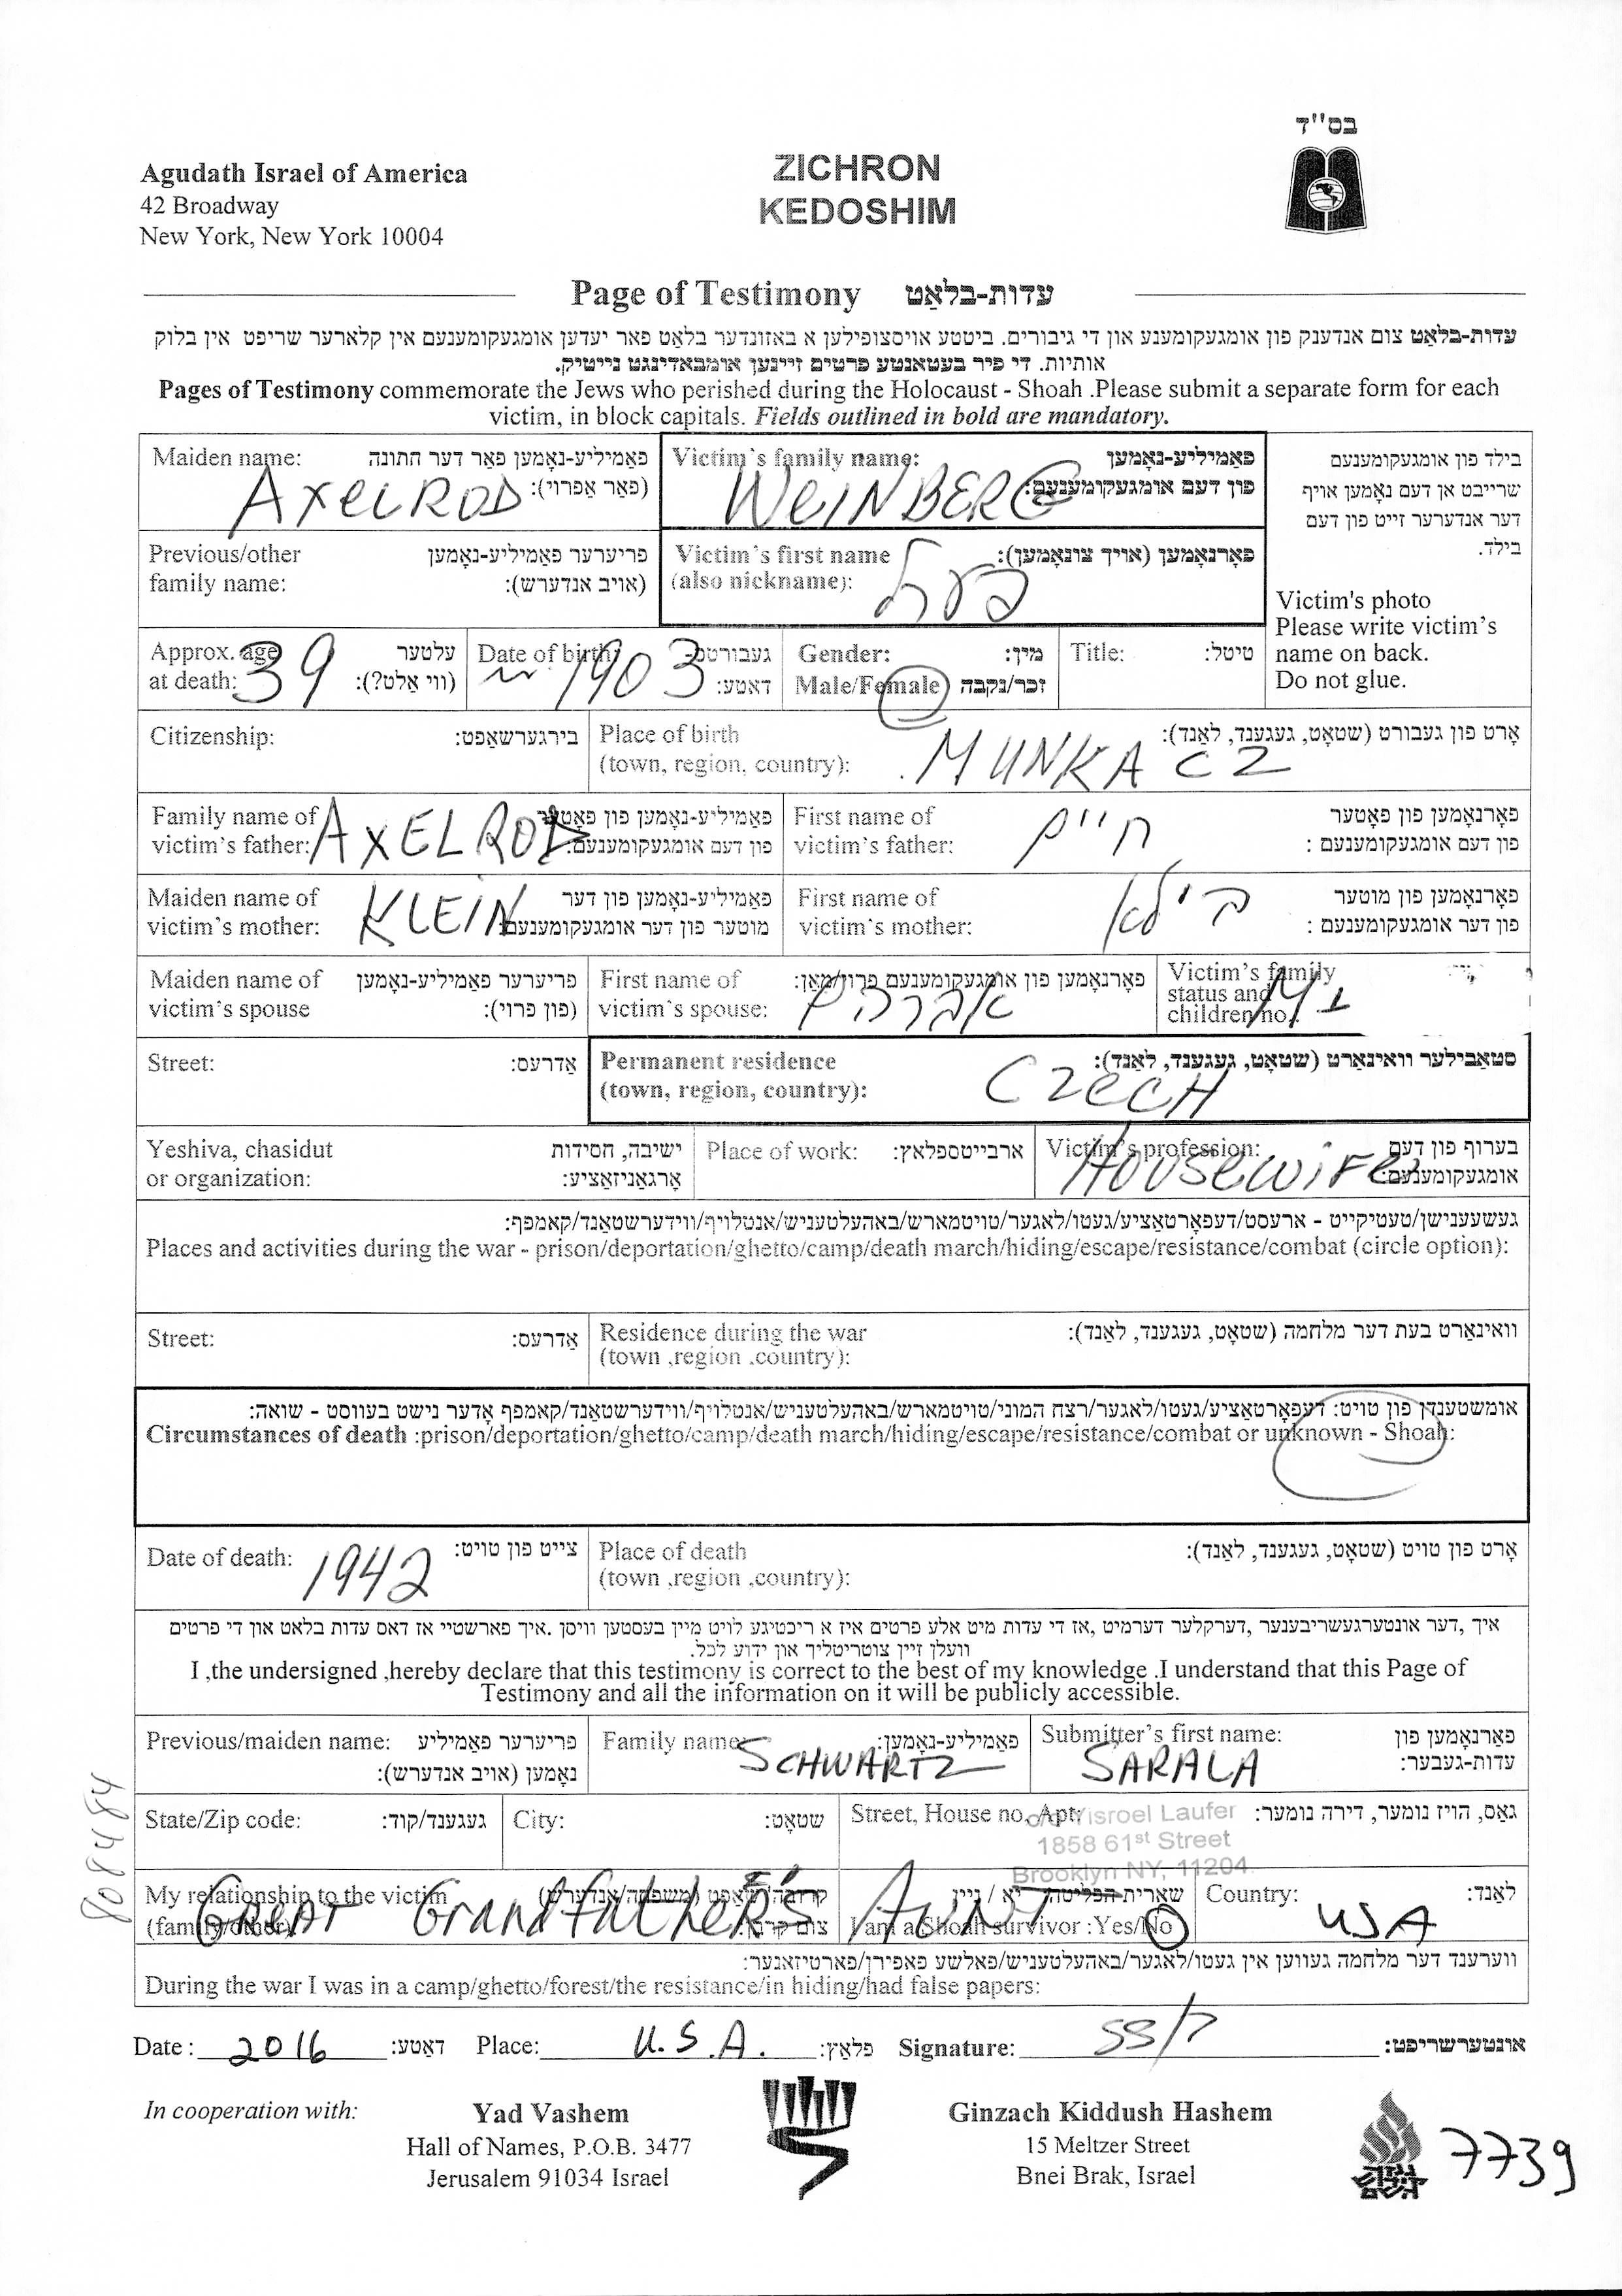 בס"ד
Agudath Israel of America
42 Broadway
New York, New York 10004
ZICHRON
KEDOSHIM
Page of Testimony עדות-בלאַט
עדות-בלאַט צום אנדענק פון אומגעקומענע און די גיבורים. ביטטע אויסצופילען א באזונדער בלאַט פאר יעדען אומגעקומענעם אין קלארער שריפט אין בלוק
אותיות. די פיר בעטאנטע פרטים זיינען אומבאדינגט נייטיק.
Pages of Testimony commemorate the Jews who perished during the Holocaust - Shoah .Please submit a separate form for each
victim, in block capitals. Fields outlined in bold are mandatory.
Maiden name: פאַמיליע-נאָמען פאר דער חתונה
(פאר אַפרוי): AXELROD
Victim's family name: פאַמיליע-נאָמען
פון דעם אומגעקומענעם: WEINBERG
בילד פון אומגעקומענעם
שרייבט אן דעם נאָמען אויף
דער אנדערער זייט פון דעם
בילד.
Victim's photo
Please write victim's
name on back.
Do not glue.
Previous/other פריערער פאַמיליע-נאָמען
family name: (אויב אנדערש):
Victim's first name פאָרנאָמען (אויך צונאָמען):
(also nickname):
Approx. age עלטער
at death: 39 (ווי אַלט?):
Date of birth: געבורטס-
1903 דאַטע:
Gender: מין:
Male/Female זכר/נקבה
Title: טיטל:
Citizenship: בירגערשאַפט:
Place of birth אָרט פון געבורט (שטאָט, געגענד, לאַנד):
(town, region, country): MUNKACZ
Family name of פאַמיליע-נאָמען פון פאָטער
victim's father: AXELROD פון דעם אומגעקומענעם:
First name of פאָרנאָמען פון פאָטער
victim's father: חיים פון דעם אומגעקומענעם :
Maiden name of פאַמיליע-נאָמען פון דער
victim's mother: KLEIN מוטער פון דער אומגעקומענעם:
First name of פאָרנאָמען פון מוטער
victim's mother: ביילא פון דער אומגעקומענעם :
Maiden name of פריערער פאַמיליע-נאָמען
victim's spouse (פון פרוי):
First name of פאָרנאָמען פון אומגעקומענעם פרוי/מאַן:
victim's spouse: אברהם
Victim's family
status and
children no. M
Street: אַדרעס:
Permanent residence סטאַבילער וואוינאָרט (שטאָט, געגענד, לאַנד):
(town, region, country): CZECH
Yeshiva, chasidut ישיבה, חסידות
or organization: אָרגאַניזאַציע:
Place of work: ארבייטספלאַץ:
Victim's profession: בערוף פון דעם
HOUSEWIFE אומגעקומענעם:
געשעענישן/טעטיקייט - ארעסט/דעפאָרטאַציע/געטו/לאגער/טויטמארש/באהעלטעניש/אנטלויף/ווידערשטאַנד/קאמפף:
Places and activities during the war - prison/deportation/ghetto/camp/death march/hiding/escape/resistance/combat (circle option):
Street: אַדרעס:
Residence during the war וואוינאָרט בעת דער מלחמה (שטאָט, געגענד, לאַנד):
(town ,region ,country):
אומשטענדן פון טויט: דעפאָרטאַציע/געטו/לאגער/רצח המוני/טויטמארש/באהעלטעניש/אנטלויף/ווידערשטאַנד/קאמפף אָדער נישט בעווסט - שואה:
Circumstances of death :prison/deportation/ghetto/camp/death march/hiding/escape/resistance/combat or unknown - Shoah:
Date of death: 1942 צייט פון טויט:
Place of death אָרט פון טויט (שטאָט, געגענד, לאַנד):
(town ,region ,country):
איך ,דער אונטערגעשריבענער ,דערקלער דערמיט ,אז די עדות מיט אלע פרטים איז א ריכטיגע לויט מיין בעסטען וויסן .איך פארשטיי אז דאס עדות בלאט און די פרטים
וועלן זיין צוטריטליך און ידוע לכל.
I ,the undersigned ,hereby declare that this testimony is correct to the best of my knowledge .I understand that this Page of
Testimony and all the information on it will be publicly accessible.
Previous/maiden name: פריערער פאַמיליע
נאָמען (אויב אנדערש):
Family name: SCHWARTZ פאַמיליע-נאָמען:
Submitter's first name: פאָרנאָמען פון
SARALA עדות-געבער:
State/Zip code: געגענד/קוד:
City: שטאָט:
Street, House no, Apt: גאַס, הויז נומער, דירה נומער:
c/o Yisroel Laufer
1858 61st Street
Brooklyn NY, 11204
My relationship to the victim קרובה/שאַפט (משפחה/אנדערש)
(family/other) צום קרבן:
GREAT GrandfatheR'S AUNT
שארית הפליטה יא / ניין
I am a Shoah survivor :Yes/No
Country: לאַנד:
USA
ווערענד דער מלחמה געווען אין געטו/לאגער/באהעלטעניש/פאלשע פאפירן/פארטיזאנער:
During the war I was in a camp/ghetto/forest/the resistance/in hiding/had false papers:
Date : 2016 דאַטע: Place: U.S.A. פלאַץ: Signature: אונטערשריפט:
In cooperation with:
Yad Vashem
Hall of Names, P.O.B. 3477
Jerusalem 91034 Israel
Ginzach Kiddush Hashem
15 Meltzer Street
Bnei Brak, Israel
7739
808484